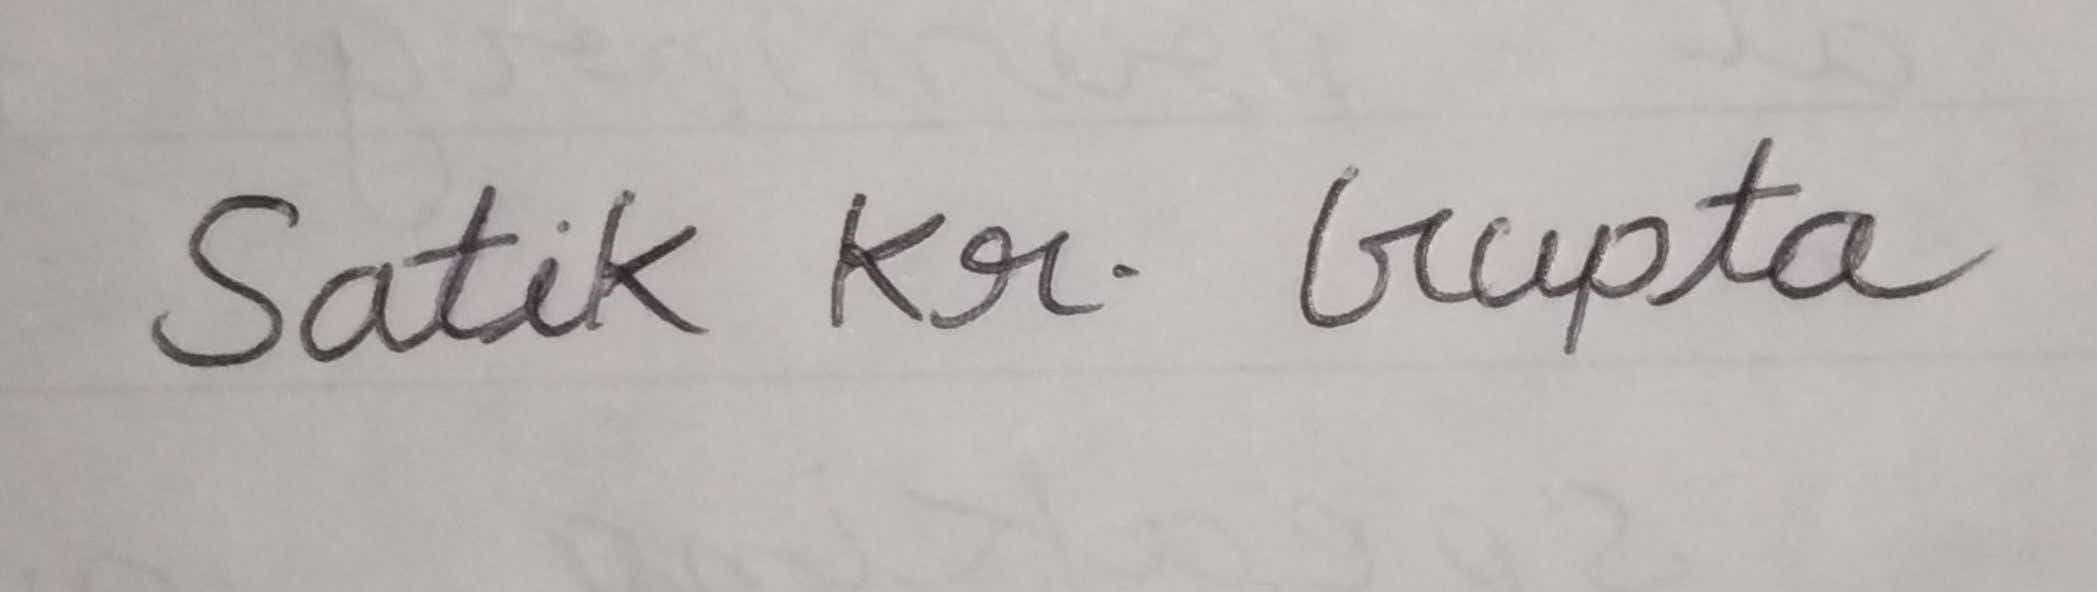 Satik Kr. Gupta